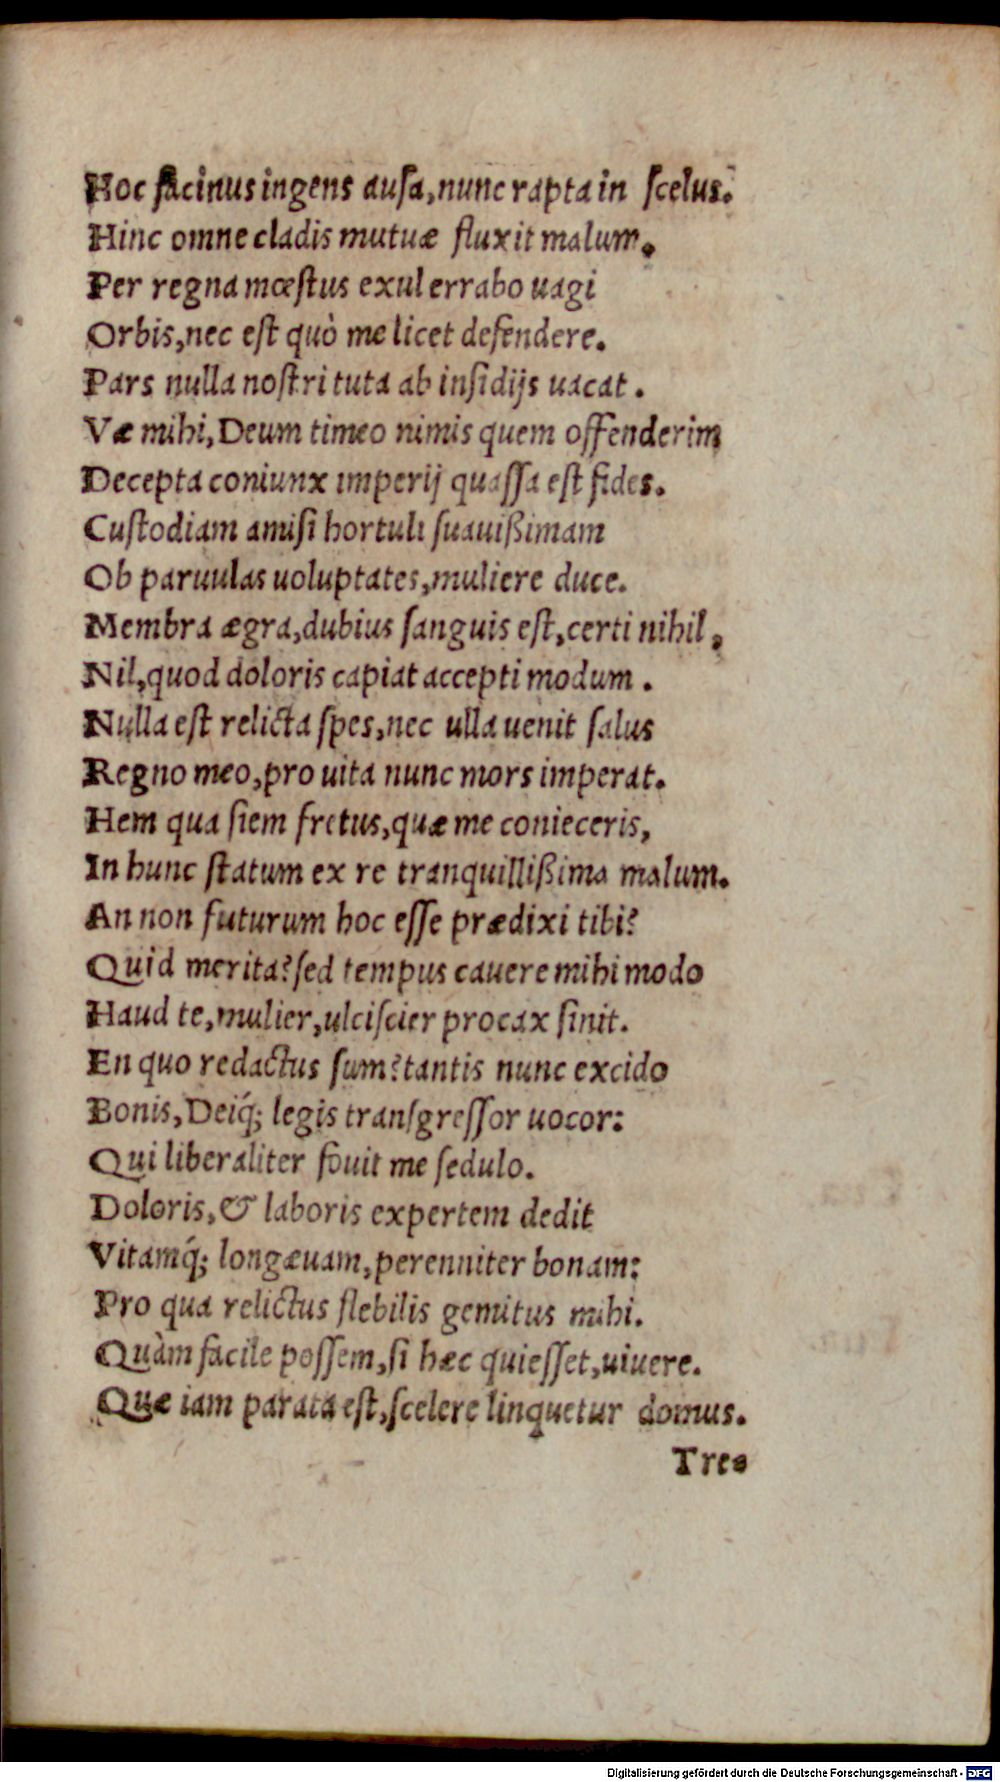 Hoc facinus ingens ausa, nunc rapta in scelus.
Hinc omne cladis mutuæ fluxit malum.
Per regna mœstus exul errabo uagi
Orbis, nec est quò me licet defendere.
Pars nulla nostri tuta ab insidijs uacat.
Væ mihi, Deum timeo nimis quem offenderim
Decepta coniunx imperij quassa est fides.
Custodiam amisi hortuli suauißimam
Ob paruulas uoluptates, muliere duce.
Membra ægra, dubius sanguis est, certi nihil,
Nil, quod doloris capiat accepti modum.
Nulla est relicta spes, nec ulla uenit salus
Regno meo, pro uita nunc mors imperat.
Hem qua siem fretus, quæ me conieceris,
In hunc statum ex re tranquillißima malum.
An non futurum hoc esse prædixi tibi?
Quid merita? sed tempus cauere mihi modo
Haud te, mulier, ulciscier procax sinit.
En quo redactus sum? tantis nunc excido
Bonis, Deiq́; legis transgressor uocor:
Qui liberaliter fouit me sedulo.
Doloris, & laboris expertem dedit
Vitamq́; longæuam, perenniter bonam:
Pro qua relictus flebilis gemitus mihi.
Quàm facile possem, si hæc quiesset, uiuere.
Quæ iam parata est, scelere linquetur domus.
Tres
Digitalisierung gefördert durch die Deutsche Forschungsgemeinschaft - DFG